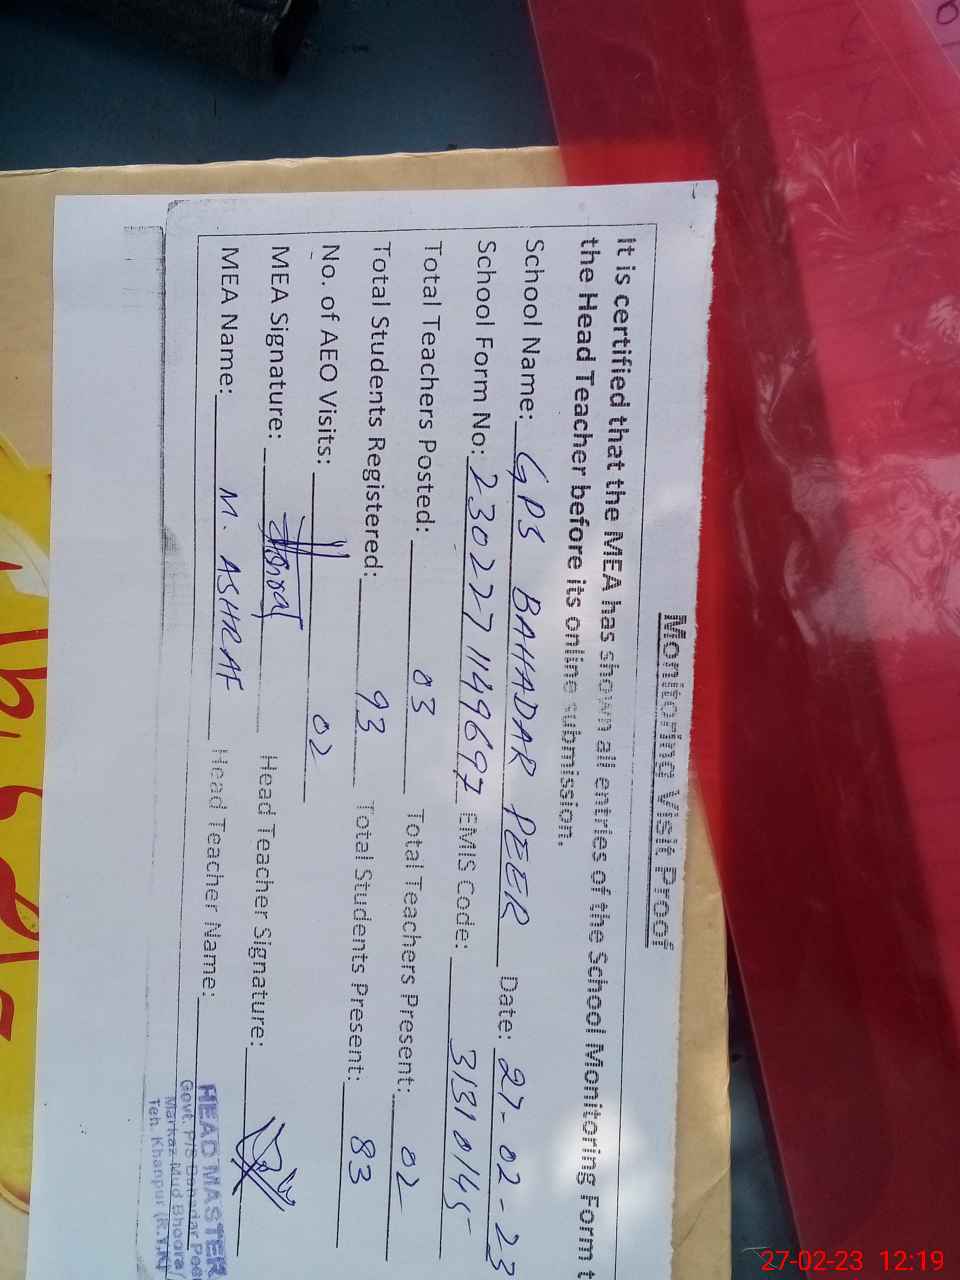 Monitoring Visit Proof
It is certified that the MEA has shown all entries of the School Monitoring Form t
the Head Teacher before its online submission.
School Name: GPS BAHADAR PEER Date: 27-02-23
School Form No: 2302271149697 EMIS Code: 31310145
Total Teachers Posted: 03 Total Teachers Present: 02
Total Students Registered: 93 Total Students Present: 83
No. of AEO Visits: 02
MEA Signature: Head Teacher Signature:
MEA Name: M. ASHRAF Head Teacher Name:
HEAD MASTER
Govt. P/S Bahadar Pee
Markaz Mud Bhoora
Teh. Khanpur (R.Y.K)
27-02-23 12:19